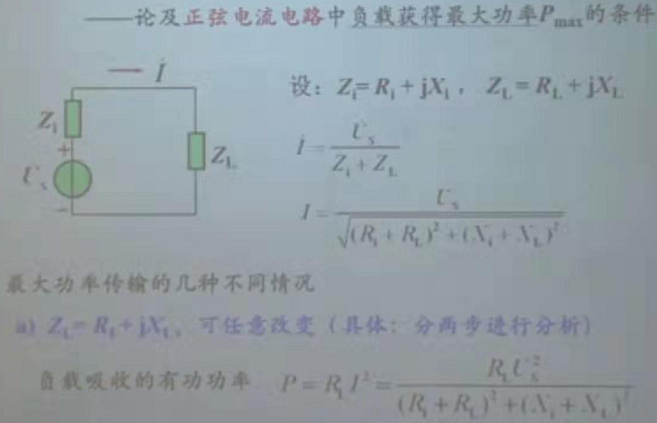 ——论及正弦电流电路中负载获得最大功率Pmax的条件
İ
Zi
+
U̇s
-
ZL
设：Zi= Ri + jXi ， ZL = RL + jXL
İ = U̇s / (Zi + ZL)
I = Us / √((Ri + RL)² + (Xi + XL)²)
最大功率传输的几种不同情况
a) ZL= RL + jXL，可任意改变（具体：分两步进行分析）
负载吸收的有功功率 P = RL I² = RL Us² / ((Ri + RL)² + (Xi + XL)²)